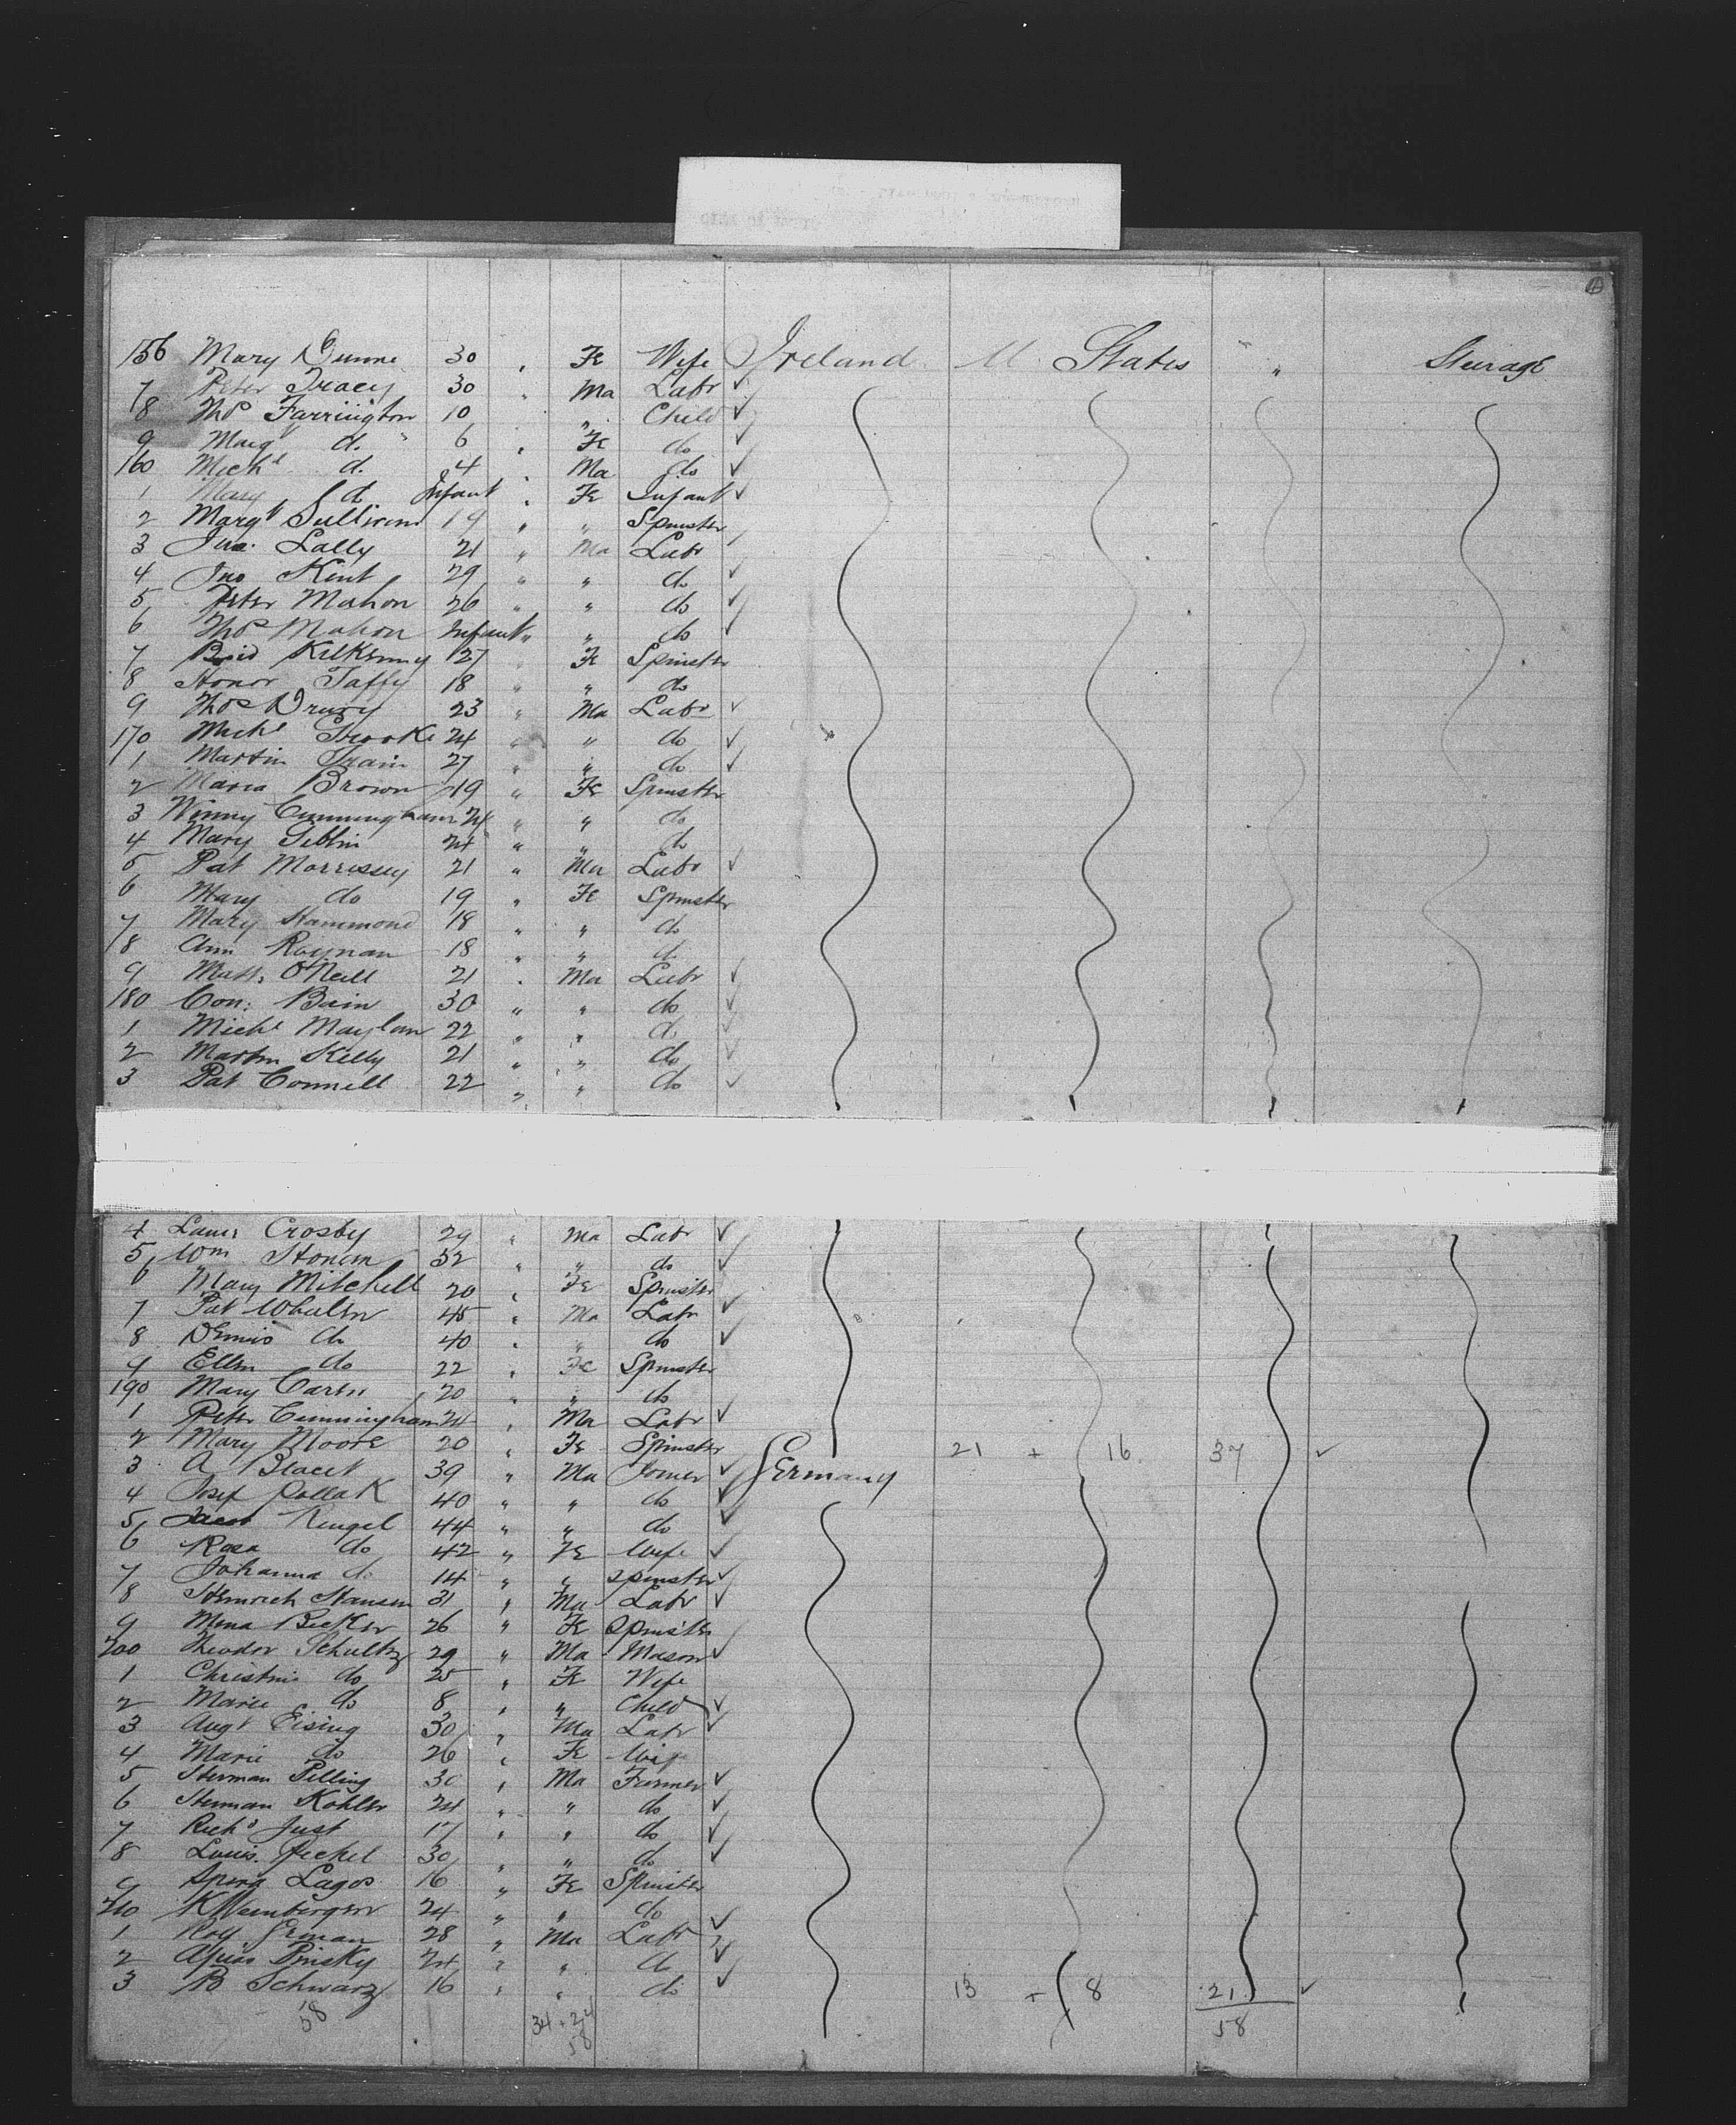 156 Mary Dunne 30 " Fe Wife Ireland U. States " Steerage
7 Peter Tracey 30 " Ma Labr
8 Thos Farrington 10 " " Child
9 Margt d. 6 " Fe do
160 Michl d. 4 " Ma do
1 Mary do Infant " Fe Infant
2 Margt Sullivan 19 " " Spinster
3 Jno. Lally 21 " Ma Labr
4 Jno Kent 29 " " do
5 Peter Mahon 26 " " do
6 Thos Mahon Infant " " do
7 Brid Kilkenny 27 " Fe Spinster
8 Honor Taffy 18 " " do
9 Thos Drury 23 " Ma Labr
170 Michl 24 " " do
1 Martin 27 " " do
2 Maria Brown 19 " Fe Spinster
3 Winny Cunningham 24 " " do
4 Mary Giblin 24 " " do
5 Pat Morrissey 21 " Ma Labr
6 Mary do 19 " Fe Spinster
7 Mary Hammond 18 " " do
8 Ann 18 " " do
9 Matt. O'Neill 21 " Ma Labr
180 Con: Bain 30 " " do
1 Michl Maylan 22 " " do
2 Martin Kelly 21 " " do
3 Pat Connell 22 " " do
4 Crosby 29 " Ma Labr
5 Wm 32 " " do
6 Mary Mitchell 20 " Fe Spinster
7 Pat Whalen 45 " Ma Labr
8 Dennis do 40 " " do
9 Ellen do 22 " Fe Spinster
190 Mary Caren 20 " " do
1 Peter Cunningham 24 " Ma Labr
2 Mary Moore 20 " Fe Spinster 21 + 16 37
3 A 39 " Ma Joiner Germany
4 Josef Pollak 40 " " do
5 Jacob Rengel 44 " " do
6 Rosa do 42 " Fe Wife
7 Johanna do 14 " " Spinster
8 Heinrich Hansen 31 " Ma Labr
9 Mina Becker 26 " Fe Spinster
200 Theodor Schultz 29 " Ma Mason
1 Christine do 25 " Fe Wife
2 Marie do 8 " " Child
3 Augt Eising 30 " Ma Labr
4 Marie do 26 " Fe Wife
5 Herman Pilling 30 " Ma Farmer
6 Herman Kohler 24 " " do
7 Richd Just 17 " " do
8 Louis Jeckel 30 " " do
9 Lagos 16 " Fe Spinster
210 K Weinberger 24 " " do
1 28 " Ma Labr
2 Pinsky 24 " " do
3 B Schwarz 16 " " do 13 + 8 21
58 34 + 24 58
58